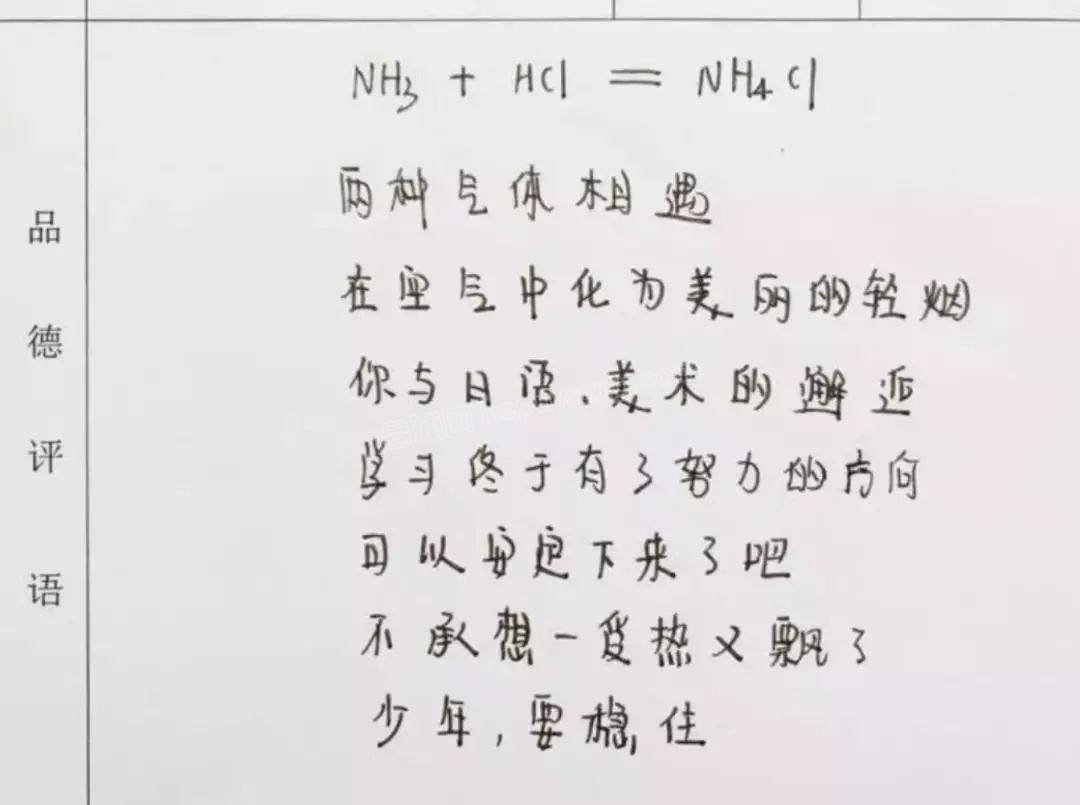 品德评语
NH₃ + HCl = NH₄Cl
两种气体相遇
在空气中化为美丽的轻烟
你与日语、美术的邂逅
学习终于有了努力的方向
可以安定下来了吧
不承想一受热又飘了
少年，要稳住